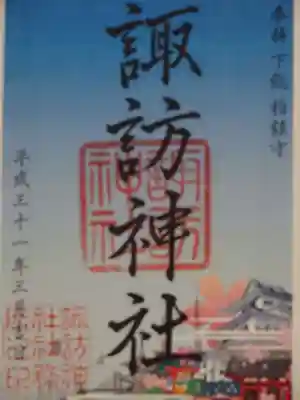 奉拝 下総
諏訪神社
平成三十一年三月
諏訪神
社社務
所之印